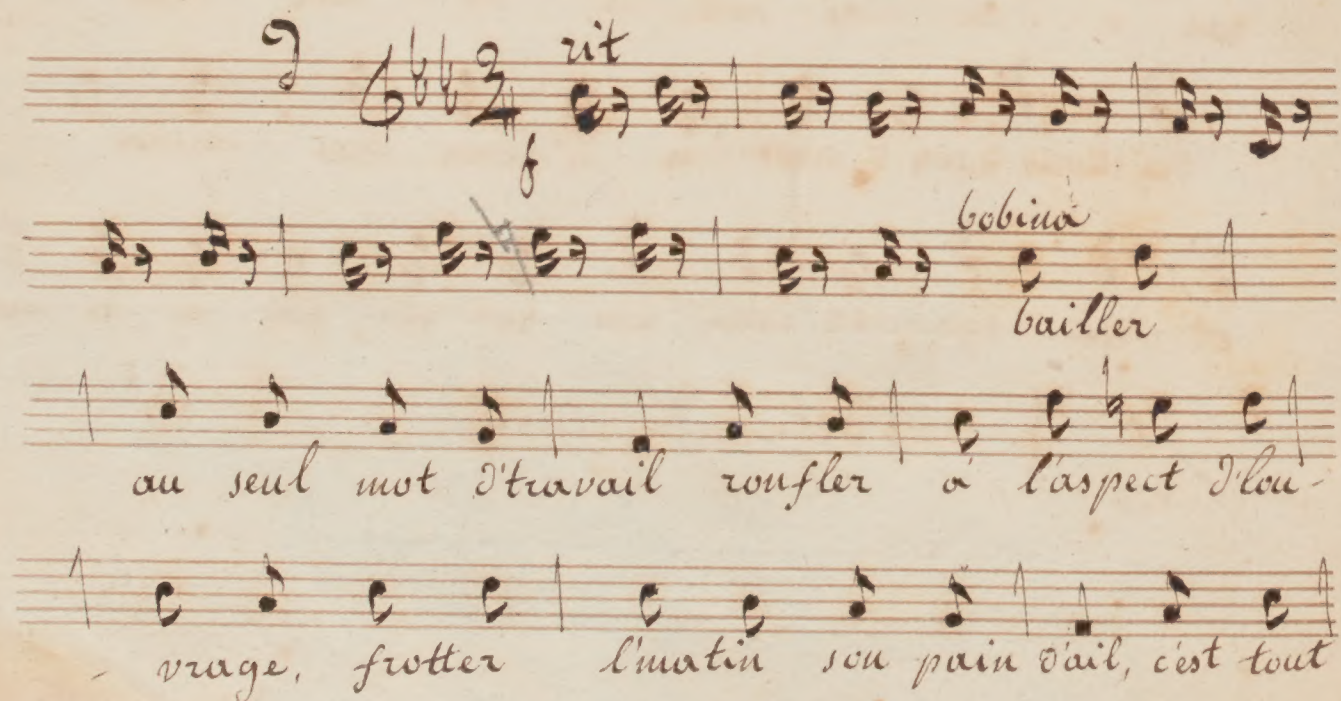 rit
f
bobina
bailler
au seul mot d'travail ronfler à l'aspect d'lou-
- vrage, frotter l'matin son pain d'ail, c'est tout